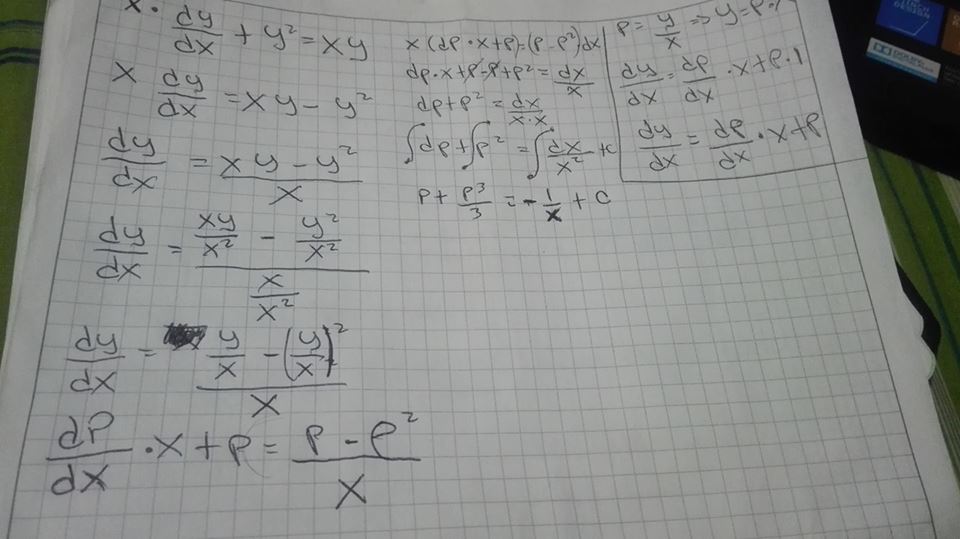 x · dy/dx + y² = xy
x dy/dx = xy - y²
dy/dx = (xy - y²)/x
dy/dx = (xy/x² - y²/x²)/(x/x²)
dy/dx = (y/x - (y/x)²)/x
dP/dx · x + p = (p - p²)/x
x(dp · x + p) = (p - p²)dx
dp · x + p - p + p² = dx/x
dp + p² = dx/(x·x)
∫dp + ∫p² = ∫dx/x² + c
p + p³/3 = -1/x + c
p = y/x => y = p·x
dy/dx = dp/dx · x + p · 1
dy/dx = dp/dx · x + p
DOLBY